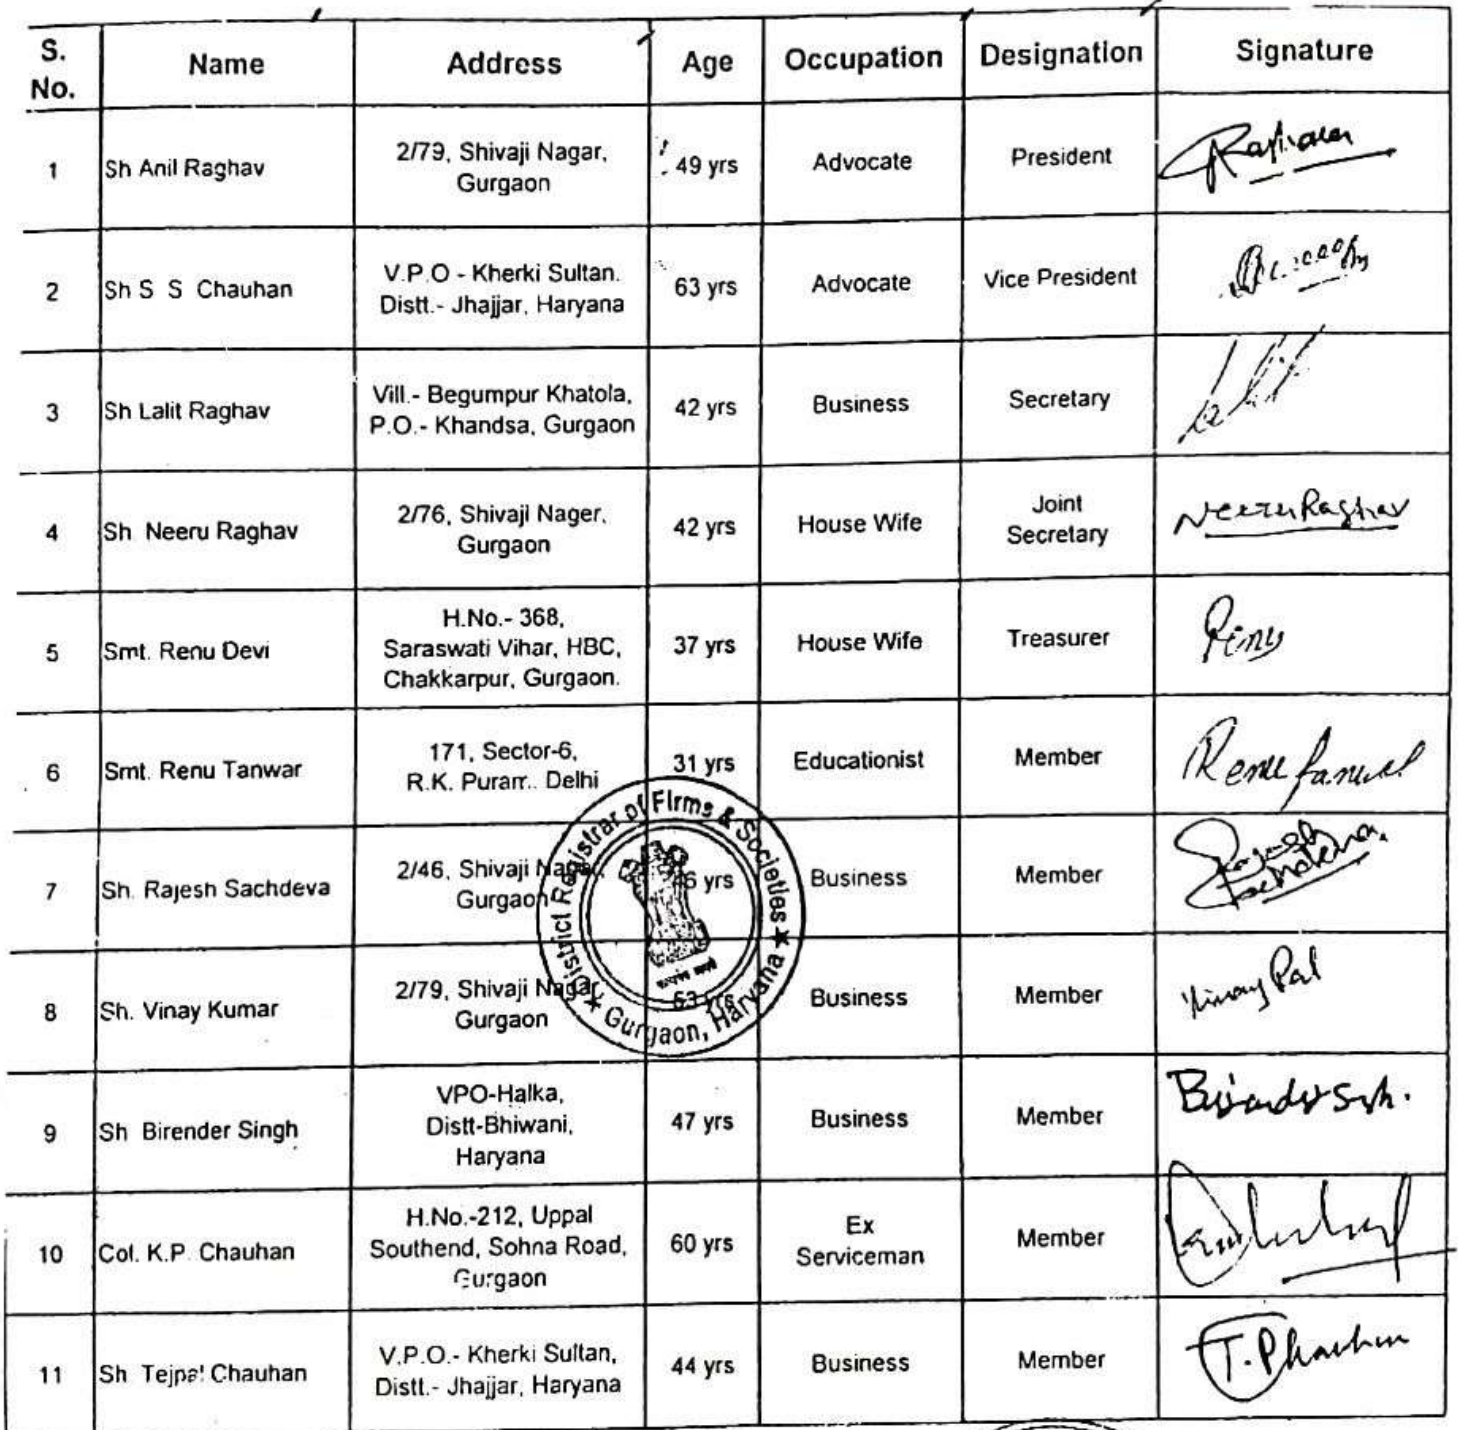 S. No. Name Address Age Occupation Designation Signature
1 Sh Anil Raghav 2/79, Shivaji Nagar, Gurgaon 49 yrs Advocate President
2 Sh S S Chauhan V.P.O - Kherki Sultan. Distt.- Jhajjar, Haryana 63 yrs Advocate Vice President
3 Sh Lalit Raghav Vill.- Begumpur Khatola, P.O.- Khandsa, Gurgaon 42 yrs Business Secretary Lalit
4 Sh Neeru Raghav 2/76, Shivaji Nager, Gurgaon 42 yrs House Wife Joint Secretary Neeru Raghav
5 Smt. Renu Devi H.No.- 368, Saraswati Vihar, HBC, Chakkarpur, Gurgaon. 37 yrs House Wife Treasurer Renu
6 Smt. Renu Tanwar 171, Sector-6, R.K. Puram.. Delhi 31 yrs Educationist Member Renu Tanwar
7 Sh. Rajesh Sachdeva 2/46, Shivaji Nagar, Gurgaon yrs Business Member Rajesh Sachdeva
8 Sh. Vinay Kumar 2/79, Shivaji Nagar, Gurgaon 53 yrs Business Member Vinay Pal
9 Sh Birender Singh VPO-Halka, Distt-Bhiwani, Haryana 47 yrs Business Member Birender Singh.
10 Col. K.P. Chauhan H.No.-212, Uppal Southend, Sohna Road, Gurgaon 60 yrs Ex Serviceman Member
11 Sh Tejpal Chauhan V.P.O.- Kherki Sultan, Distt.- Jhajjar, Haryana 44 yrs Business Member T. P Chauhan
District Registrar of Firms & Societies
Gurgaon, Haryana